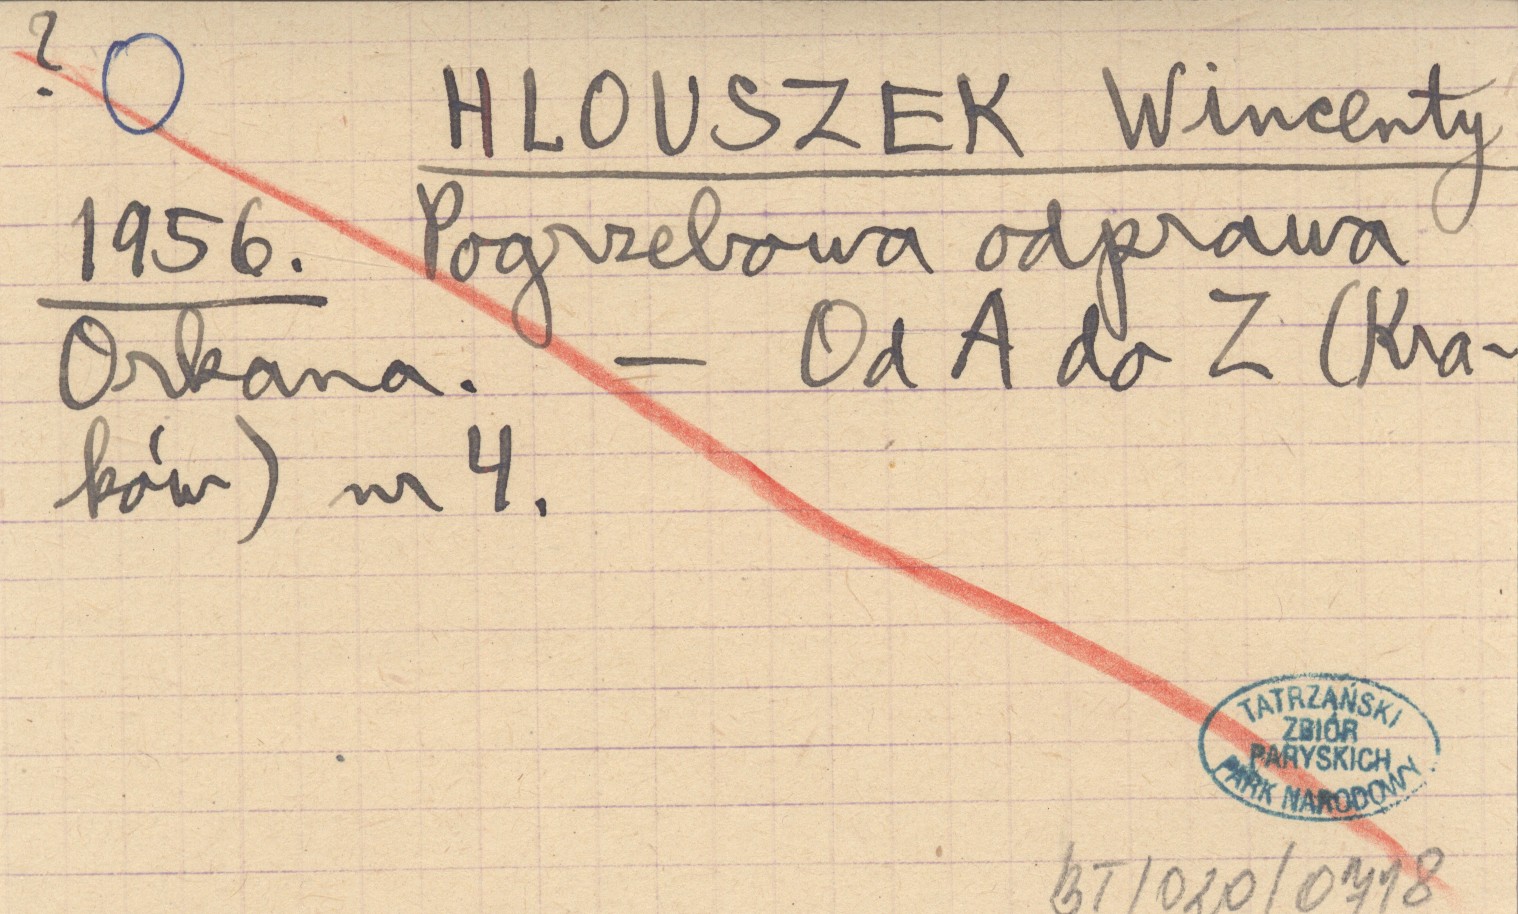 ?
HLOUSZEK Wincenty
1956. Pogrzebowa odprawa
Orkana. — Od A do Z (Kra-
ków) nr 4.
TATRZAŃSKI
ZBIÓR
PARYSKICH
PARK NARODOWY
BT/020/0718